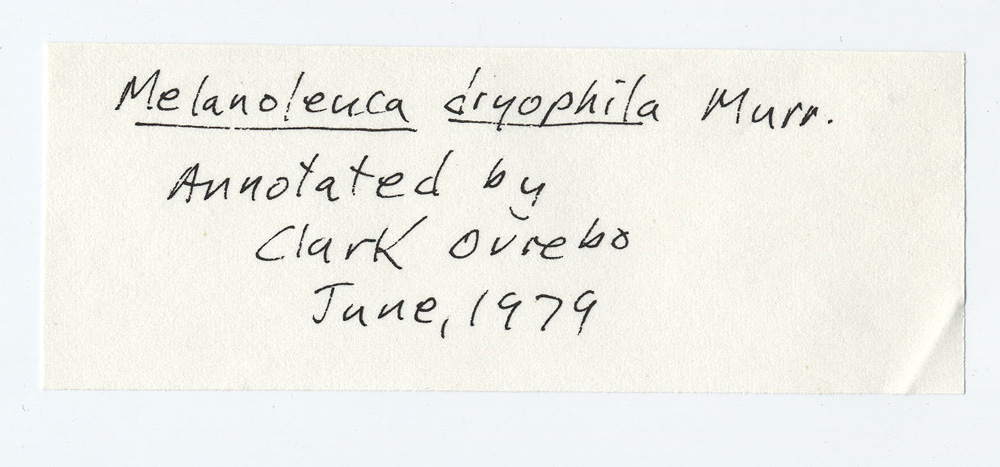 Melanoleuca dryophila Murr.
Annotated by
Clark Ovrebo
June, 1979